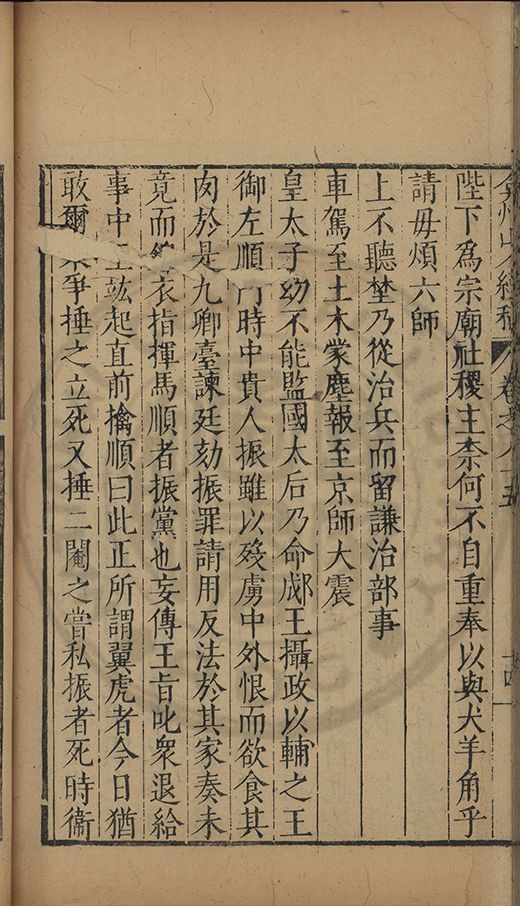 陛下為宗廟社稷主柰何不自重奉以與犬羊角乎
請毋煩六師
上不聽埜乃從治兵而留謙治部事
車駕至土木蒙塵報至京師大震
皇太子幼不能監國太后乃命郕王攝政以輔之王
御左順門時中貴人振雖以殁虜中外恨而欲食其
肉於是九卿臺諫廷劾振罪請用反法於其家奏未
竟而衣指揮馬順者振黨也妄傳王旨叱衆退給
事中王竑起直前擒順曰此正所謂翼虎者今日猶
敢爾衆爭捶之立死又捶二閹之嘗私振者死時衞